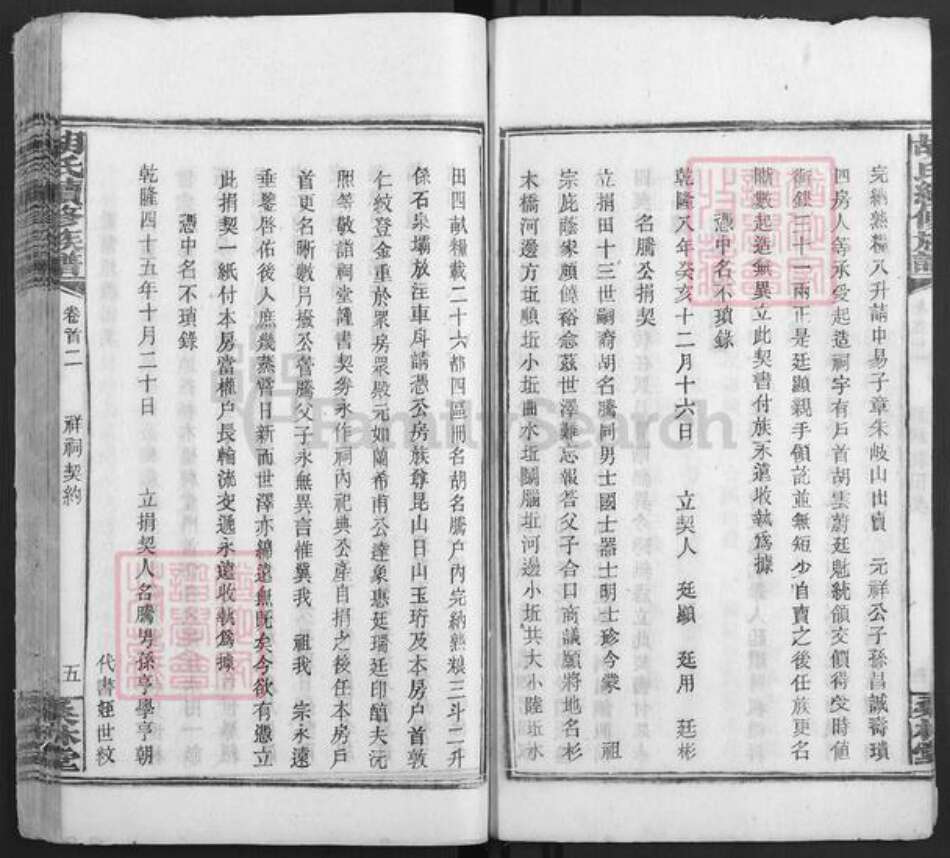 完納熟糧八升請中易子章朱岐山出賣　元祥公子孫昌誠壽瓆
四房人等承受起造祠宇有戶首胡雲蔚廷魁統領交價得受時値
銜銀三十一兩正是廷顯親手領訖並無短少自賣之後任族更名
撥數起造無異立此契書付族永遠收執爲據
憑中名不瑣錄
乾隆八年癸亥十二月十六日　立契人　廷顯　廷用　廷彬
名騰公捐契
立捐田十三世嗣裔胡名騰同男士國士器士明士珍今蒙　祖
宗庇蔭家頗饒裕念茲世澤難忘報答父子合口商議願將地名杉
木橋河邊方坵順坵小坵曲水坵闊腦坵河邊小坵共大小陸坵水
田四畝糧載二十六都四區冊名胡名騰戶內完納熟粮三斗二升
係石泉壩放注車戽請憑公房族尊昆山日山玉珩及本房戶首敦
仁紋登金重於眾房眾殿元如蘭希甫公達象惠廷瑞廷印醴夫沅
照等敬詣祠堂謹書契券永作祠內祀典公產自捐之後任本房戶
首更名晰數另撥公管騰父子永無異言惟冀我　祖我　宗永遠
垂鑒啓佑後人庶幾蒸嘗日新而世澤亦綿遠無旣矣今欲有憑立
此捐契一紙付本房當權戶長輪流交遞永遠收執爲據
憑中名不瑣錄
乾隆四十五年十月二十日　立捐契人名騰男孫亨學亨朝
代書姪世紋
胡氏續修族譜　卷首二　祥祠契約　五
FamilySearch